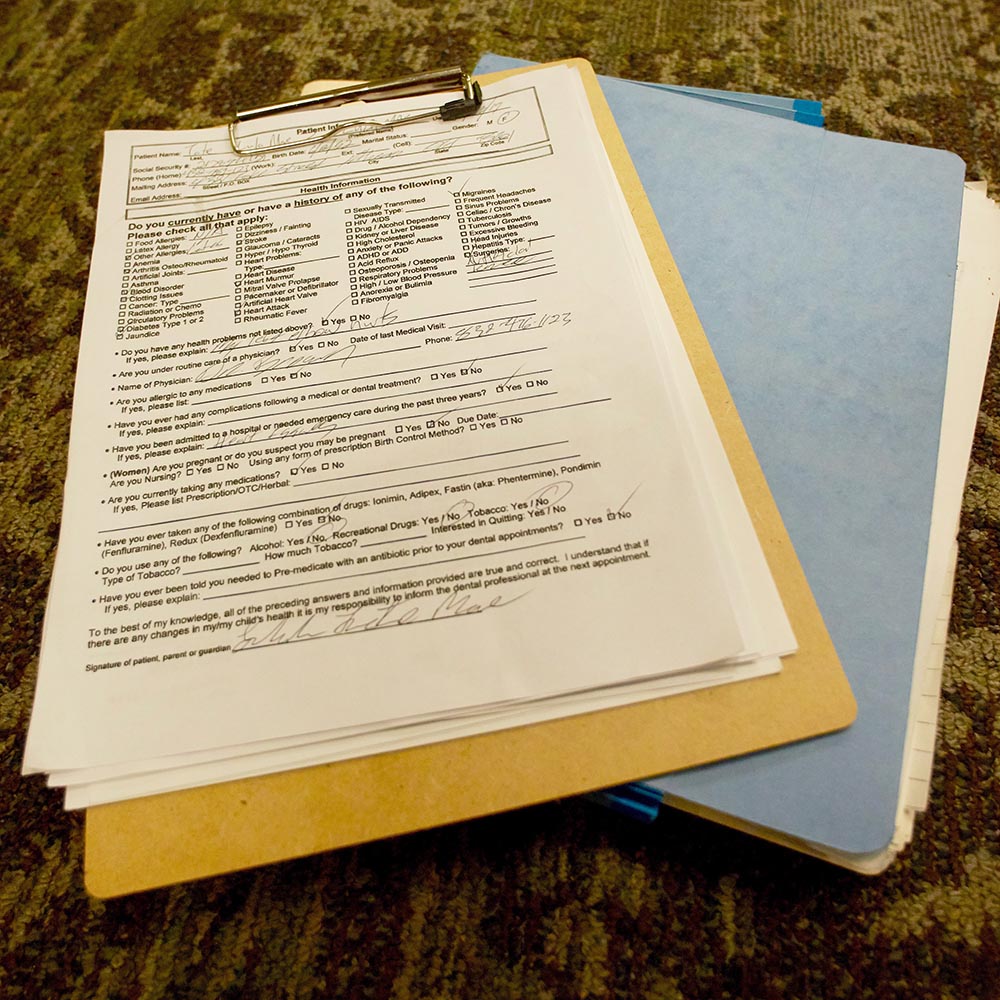 Patient Information
Patient Name:
Last, (Preferred Name) Gender: M F
Social Security #: Birth Date: Marital Status:
Phone (Home): (Work): Ext: (Cell):
Mailing Address:
Street / P.O. BOX City State Zip Code
Email Address:
Health Information
Do you currently have or have a history of any of the following?
Please check all that apply:
Food Allergies:
Latex Allergy
Other Allergies:
Anemia
Arthritis Osteo/Rheumatoid
Artificial Joints:
Asthma
Blood Disorder
Clotting Issues
Cancer: Type
Radiation or Chemo
Circulatory Problems
Diabetes Type 1 or 2
Jaundice
Epilepsy
Dizziness / Fainting
Stroke
Glaucoma / Cataracts
Hyper / Hypo Thyroid
Heart Problems:
Type:
Heart Disease
Heart Murmur
Mitral Valve Prolapse
Pacemaker or Defibrillator
Artificial Heart Valve
Heart Attack
Rheumatic Fever
Sexually Transmitted
Disease Type:
HIV AIDS
Drug / Alcohol Dependency
Kidney or Liver Disease
High Cholesterol
Anxiety or Panic Attacks
ADHD or ADD
Acid Reflux
Osteoporosis / Osteopenia
Respiratory Problems
High / Low Blood Pressure
Anorexia or Bulimia
Fibromyalgia
Migraines
Frequent Headaches
Sinus Problems
Celiac / Chron's Disease
Tuberculosis
Tumors / Growths
Excessive Bleeding
Head Injuries
Hepatitis Type:
Surgeries:
• Do you have any health problems not listed above? Yes No
If yes, please explain: elbow hurts
• Are you under routine care of a physician? Yes No Date of last Medical Visit:
• Name of Physician: Phone:
• Are you allergic to any medications Yes No
If yes, please list:
• Have you ever had any complications following a medical or dental treatment? Yes No
If yes, please explain:
• Have you been admitted to a hospital or needed emergency care during the past three years? Yes No
If yes, please explain: Head
• (Women) Are you pregnant or do you suspect you may be pregnant Yes No Due Date:
Are you Nursing? Yes No Using any form of prescription Birth Control Method? Yes No
• Are you currently taking any medications? Yes No
If yes, Please list Prescription/OTC/Herbal:
• Have you ever taken any of the following combination of drugs: Ionimin, Adipex, Fastin (aka: Phentermine), Pondimin
(Fenfluramine), Redux (Dexfenfluramine) Yes No
• Do you use any of the following? Alcohol: Yes / No Recreational Drugs: Yes / No Tobacco: Yes / No
Type of Tobacco? How much Tobacco? Interested in Quitting: Yes / No
• Have you ever been told you needed to Pre-medicate with an antibiotic prior to your dental appointments? Yes No
If yes, please explain:
To the best of my knowledge, all of the preceding answers and information provided are true and correct. I understand that if
there are any changes in my/my child's health it is my responsibility to inform the dental professional at the next appointment.
Signature of patient, parent or guardian